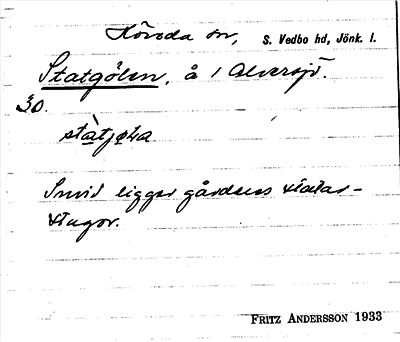 Höreda sn, S. Vedbo hd, Jönk. l.
Statgölen, å 1 Alversjö.
30.
stàtjøḷa
Invid ligger gårdens statar-
stugor.
FRITZ ANDERSSON 1933